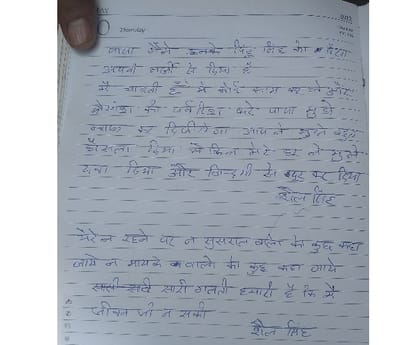 Thursday
पापा मैंने उनके सिंह को दिया
अपनी मर्जी से दिया है
मैं चाहती हूँ मैं कोई काम कर लूँ और
करे पापा मुझे
माफ कर दिजीयेगा आपने मुझे बहुत
हौसला दिया लेकिन मेरे डर ने मुझे
दबा दिया और जिन्दगी से दूर कर दिया
शैल सिंह
मेरे न रहने पर न ससुराल वालो को कुछ कहा
जाये न मायके वालो को कुछ कहा जाये
सारी गलती हमारी है कि मैं
जीवन जी न सकी
शैल सिंह